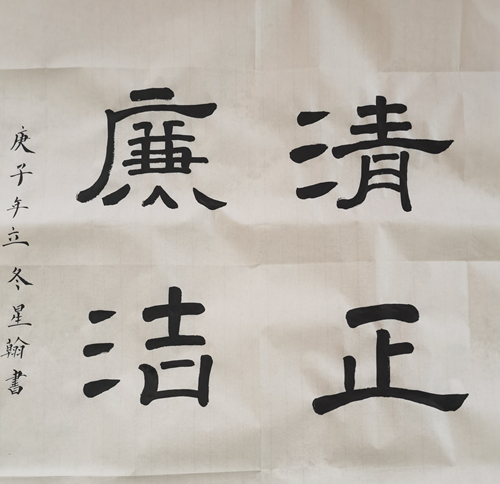 清正
廉洁
庚子年立冬星翰書